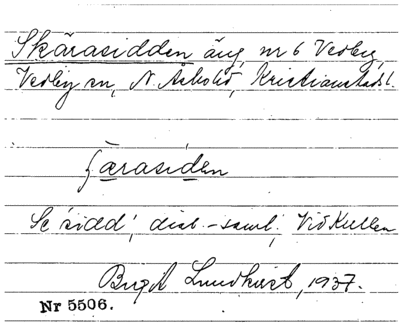 Skärasidden äng, nr 6 Vedby,
Vedby sn, N. Åsbo hd, Kristianstads l.
ʃærasiden
Se 'sidd', dial.-saml., Vid Kullen
Birgit Lundkvist, 1937.
Nr 5506.